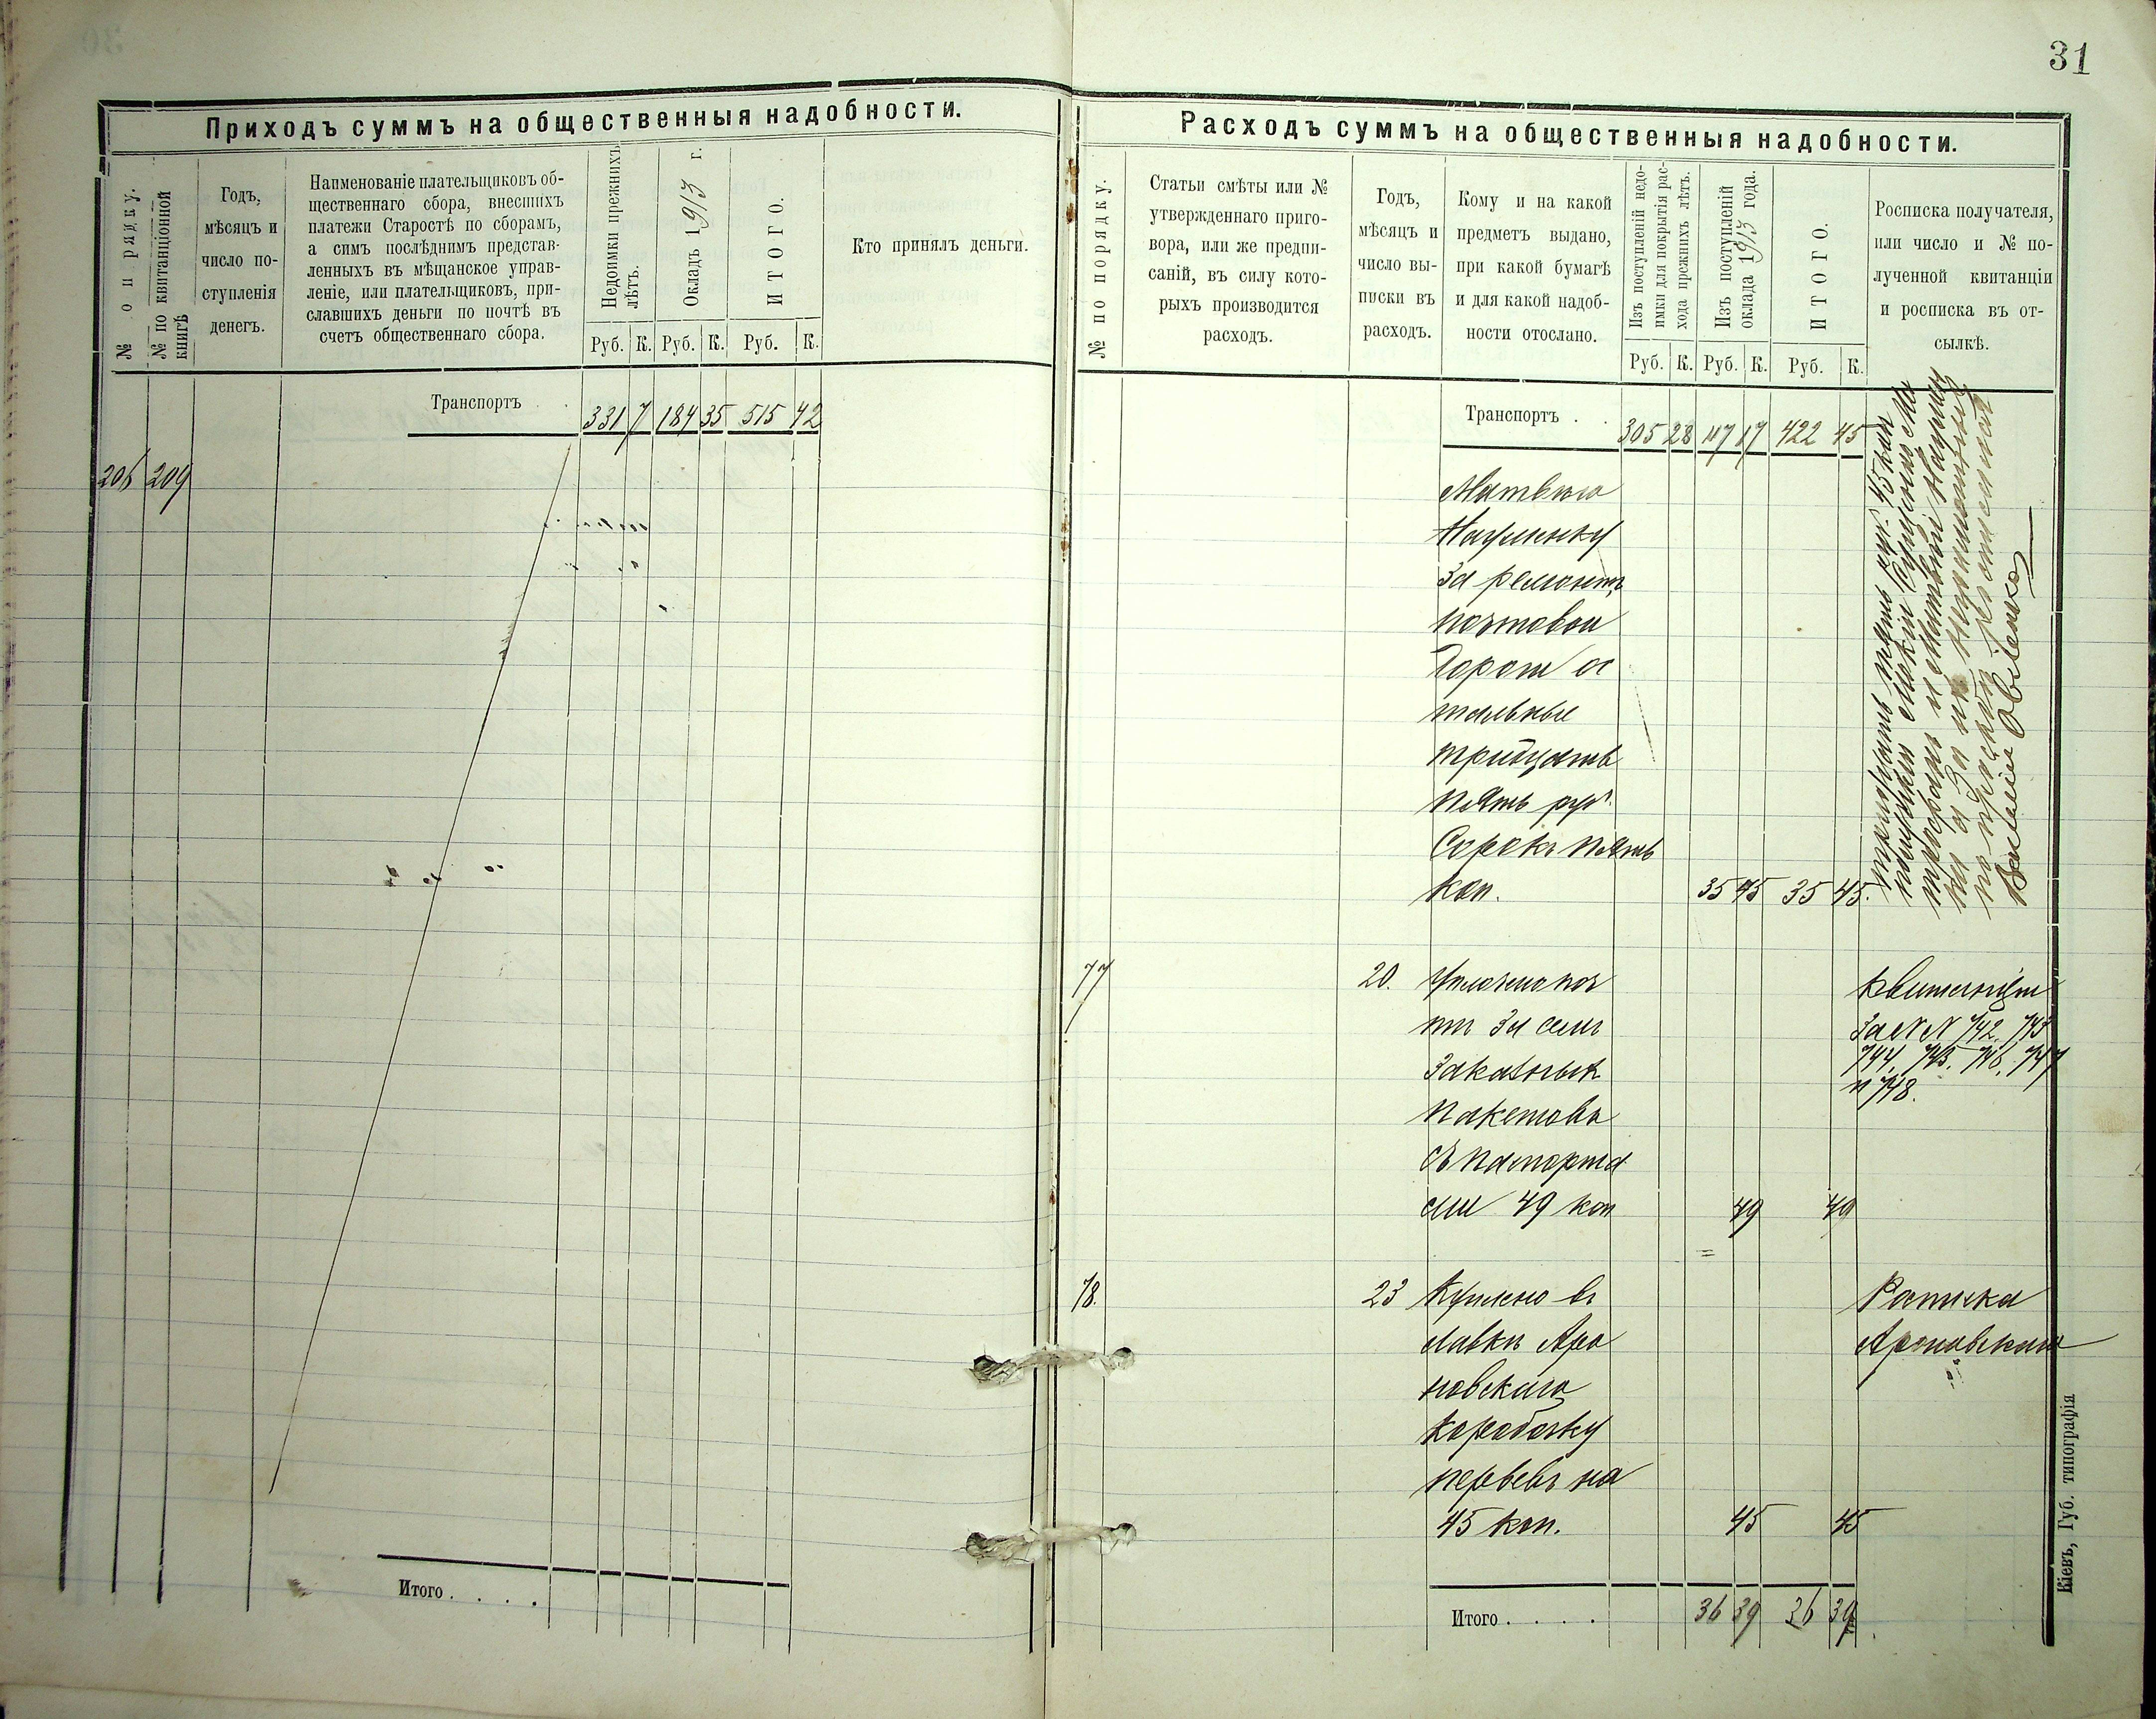 31
Приходъ суммъ на общественныя надобности.
№ по порядку.
№ по квитанціонной книгѣ
Годъ,
мѣсяцъ и
число по-
ступленія
денегъ.
Наименованіе плательщиковъ об-
щественнаго сбора, внесшихъ
платежи Старостѣ по сборамъ,
а симъ послѣднимъ представ-
ленныхъ въ мѣщанское управ-
леніе, или плательщиковъ, при-
славшихъ деньги по почтѣ въ
счетъ общественнаго сбора.
Недоимки прежнихъ
лѣтъ.
Окладъ 1913 г.
ИТОГО.
Руб. К. Руб. К. Руб. К.
Кто принялъ деньги.
Транспортъ 331 7 184 35 515 42
206 209
Итого . . . .
Расходъ суммъ на общественныя надобности.
№ по порядку.
Статьи смѣты или №
утвержденнаго приго-
вора, или же предпи-
саній, въ силу кото-
рыхъ производится
расходъ.
Годъ,
мѣсяцъ и
число вы-
писки въ
расходъ.
Кому и на какой
предметъ выдано,
при какой бумагѣ
и для какой надоб-
ности отослано.
Изъ поступленій недо-
имки для покрытія рас-
хода прежнихъ лѣтъ.
Изъ поступленій
оклада 1913 года.
ИТОГО.
Руб. К. Руб. К. Руб. К.
Росписка получателя,
или число и № по-
лученной квитанціи
и росписка въ от-
сылкѣ.
Транспортъ . . 305 28 117 17 422 45
Матвѣю
Науменку
За ремонтъ
почтовой
Дороги ос
тальные
тридцать
пять руб.
Сорокъ пять
коп. 35 45 35 45.
тридцать пять руб. 45 коп
Василій
77 20. Уплочено поч
тѣ За семь
Заказныхъ
пакетовъ
съ паспорта
ми 49 коп 49 49
Квитанціи
За №№ 742, 743
744, 745, 746, 747
и 748.
78. 23 Куплено въ
лавкѣ Аро
новскаго
Коробочку
перьевъ на
45 коп. 45 45
Росписка
Ароновскаго
Итого . . . . 36 39 36 39
Кіевъ, Губ. типографія